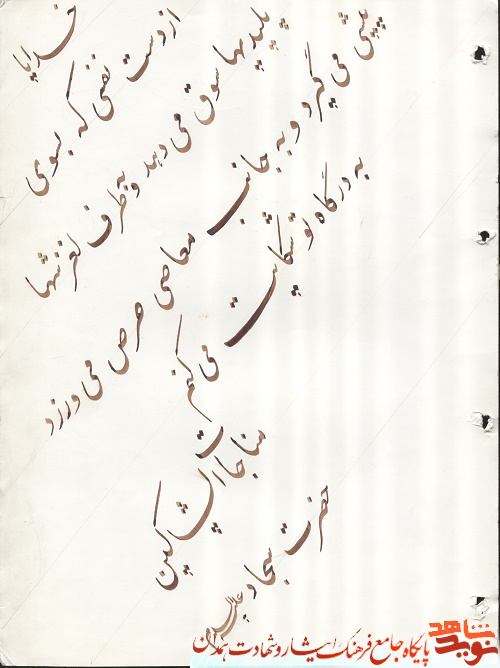 خدایا
از دست نفسی که بسوی
پلیدیها سوق می دهد و به طرف لغزشها
پیشی می گیرد و به جانب معاصی حرص می ورزد
به درگاه تو شکایت می کنم
مناجات الشاکین
حضرت سجاد
نوید شاهد
پایگاه جامع فرهنگ ایثار و شهادت همدان